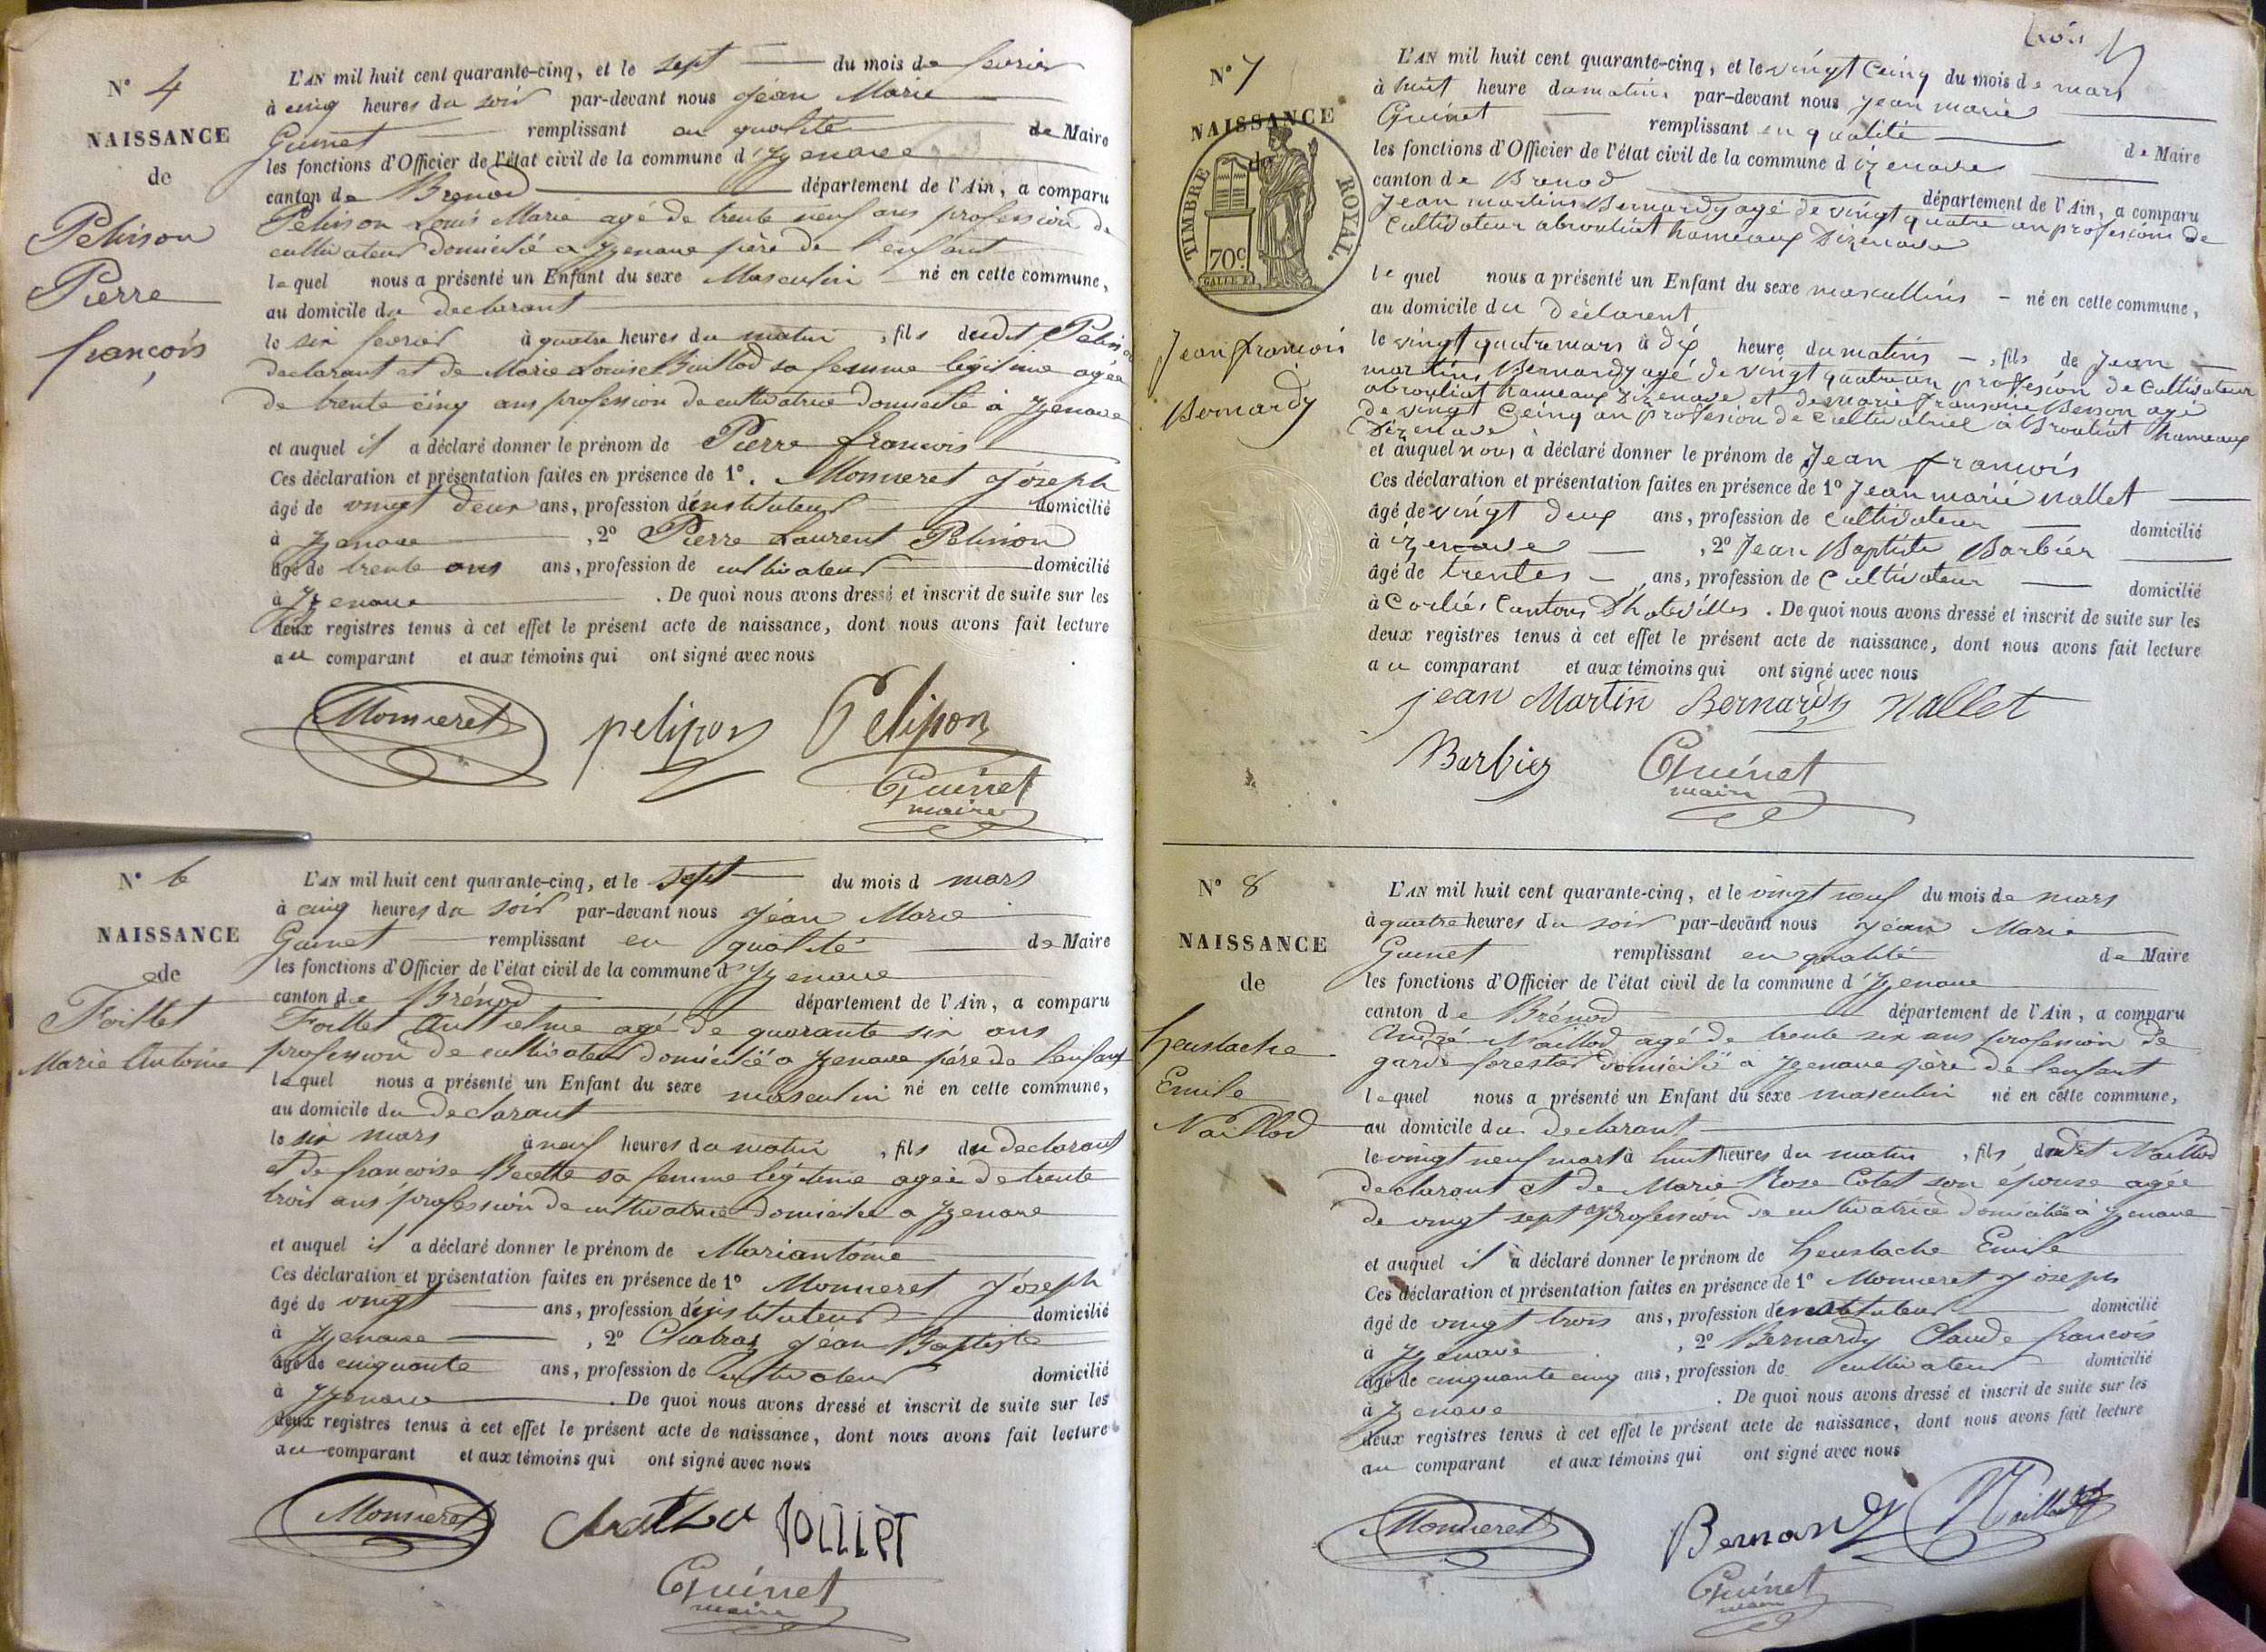 N° 4
NAISSANCE
de
Pelisson
Pierre
françois
L'AN mil huit cent quarante-cinq, et le sept du mois de fevrier
à cinq heures du soir par-devant nous Jéan Marie
Guinet remplissant en qualité de Maire
les fonctions d'Officier de l'état civil de la commune d'Izenave
canton de Brenod département de l'Ain, a comparu
Pelisson Louis Marie agé de trente neuf ans profession de
cultivateur domicilié a Izenave père de l'enfant
lequel nous a présenté un Enfant du sexe Masculin né en cette commune,
au domicile du declarant
le six fevrier à quatre heures du matin, fils dudit Pelisson
declarant et de Marie Louise Buillod sa femme légitime agée
de trente cinq ans profession de cultivatrice domicilié à Izenave
et auquel il a déclaré donner le prénom de Pierre françois
Ces déclaration et présentation faites en présence de 1°. Monneret Jóseph
âgé de vingt deux ans, profession d'instituteur domicilié
à Izenave, 2° Pierre Laurent Pelisson
âgé de trente ans ans, profession de cultivateur domicilié
à Izenave. De quoi nous avons dressé et inscrit de suite sur les
deux registres tenus à cet effet le présent acte de naissance, dont nous avons fait lecture
au comparant et aux témoins qui ont signé avec nous
Monneret pelisson Pelisson
Guinet
maire
N° 6
NAISSANCE
de
Foillet
Marie Antoine
L'AN mil huit cent quarante-cinq, et le sept du mois d mars
à cinq heures du soir par-devant nous Jéan Marie
Guinet remplissant en qualité de Maire
les fonctions d'Officier de l'état civil de la commune d'Izenave
canton de Brénod département de l'Ain, a comparu
Foillet Anthelme agé de quarante six ans
profession de cultivateur domicilié a Izenave père de l'enfant
lequel nous a présenté un Enfant du sexe masculin né en cette commune,
au domicile du declarant
le six mars à neuf heures du matin, fils du declarant
et de françoise sa femme légitime agée de trente
trois ans profession de cultivatrice domicilié a Izenave
et auquel il a déclaré donner le prénom de Mariantoine
Ces déclaration et présentation faites en présence de 1° Monneret Jóseph
âgé de vingt ans, profession d'instituteur domicilié
à Izenave, 2° Jéan Baptiste
âgé de cinquante ans, profession de Cultivateur domicilié
à Izenave. De quoi nous avons dressé et inscrit de suite sur les
deux registres tenus à cet effet le présent acte de naissance, dont nous avons fait lecture
au comparant et aux témoins qui ont signé avec nous
Monneret FOILLET
Guinet
maire
trois
N° 7
NAISSANCE
de
TIMBRE ROYAL.
70c.
Jean francois
Bernardy
L'AN mil huit cent quarante-cinq, et le vingt Ceinq du mois de mars
à huit heure du matins par-devant nous Jean marie
Guinet remplissant en qualité de Maire
les fonctions d'Officier de l'état civil de la commune d izenave
canton de Brenod département de l'Ain, a comparu
Jean martins Bernardy agé de vingt quatre an profesions de
Cultivateur abrouliat hameaux Dizenave
lequel nous a présenté un Enfant du sexe mascullins né en cette commune,
au domicile du déclarent
le vingt quatre mars à dix heure du matins, fils de Jean
martins Bernardy agé de vingt quatre an profésion de Cultivateur
abrouliat hameaux Dizenave et de marie fransoise Besson agé
de vingt Ceinq an profésion de Cultivatrice a Brouliat hameaux
Dizenave
et auquel nous a déclaré donner le prénom de Jean francois
Ces déclaration et présentation faites en présence de 1° Jean marié Nallet
âgé de vingt deux ans, profession de Cultivateur domicilié
à izenave, 2° Jean Baptiste Barbier
âgé de trentes ans, profession de Cultivateur domicilié
à Corliér Cantons D'hotevilles. De quoi nous avons dressé et inscrit de suite sur les
deux registres tenus à cet effet le présent acte de naissance, dont nous avons fait lecture
au comparant et aux témoins qui ont signé avec nous
jean Martin Bernardy Nallet
Barbier Guinet
maire
N° 8
NAISSANCE
de
heustache
Emile
Naillod
L'AN mil huit cent quarante-cinq, et le vingt neuf du mois de mars
à quatre heures du soir par-devant nous Jéan Marie
Guinet remplissant en qualité de Maire
les fonctions d'Officier de l'état civil de la commune d'Izenave
canton de Brénod département de l'Ain, a comparu
André Naillod agé de trente six ans profession de
garde forestier domicilié à Izenave père de l'enfant
lequel nous a présenté un Enfant du sexe masculin né en cette commune,
au domicile du declarant
le vingt neuf mars à huit heures du matin, fils dudit Naillod
declarant et de Marie Rose Colet son épouse agée
de vingt sept ans profession de cultivatrice domiciliée à Izenave
et auquel il a déclaré donner le prénom de heustache Emile
Ces déclaration et présentation faites en présence de 1° Monneret Joseph
âgé de vingt trois ans, profession d'instituteur domicilié
à Izenave, 2° Bernardy Claude francois
âgé de cinquante cinq ans, profession de cultivateur domicilié
à Izenave. De quoi nous avons dressé et inscrit de suite sur les
deux registres tenus à cet effet le présent acte de naissance, dont nous avons fait lecture
au comparant et aux témoins qui ont signé avec nous
Monneret Bernardy Naillod
Guinet
maire